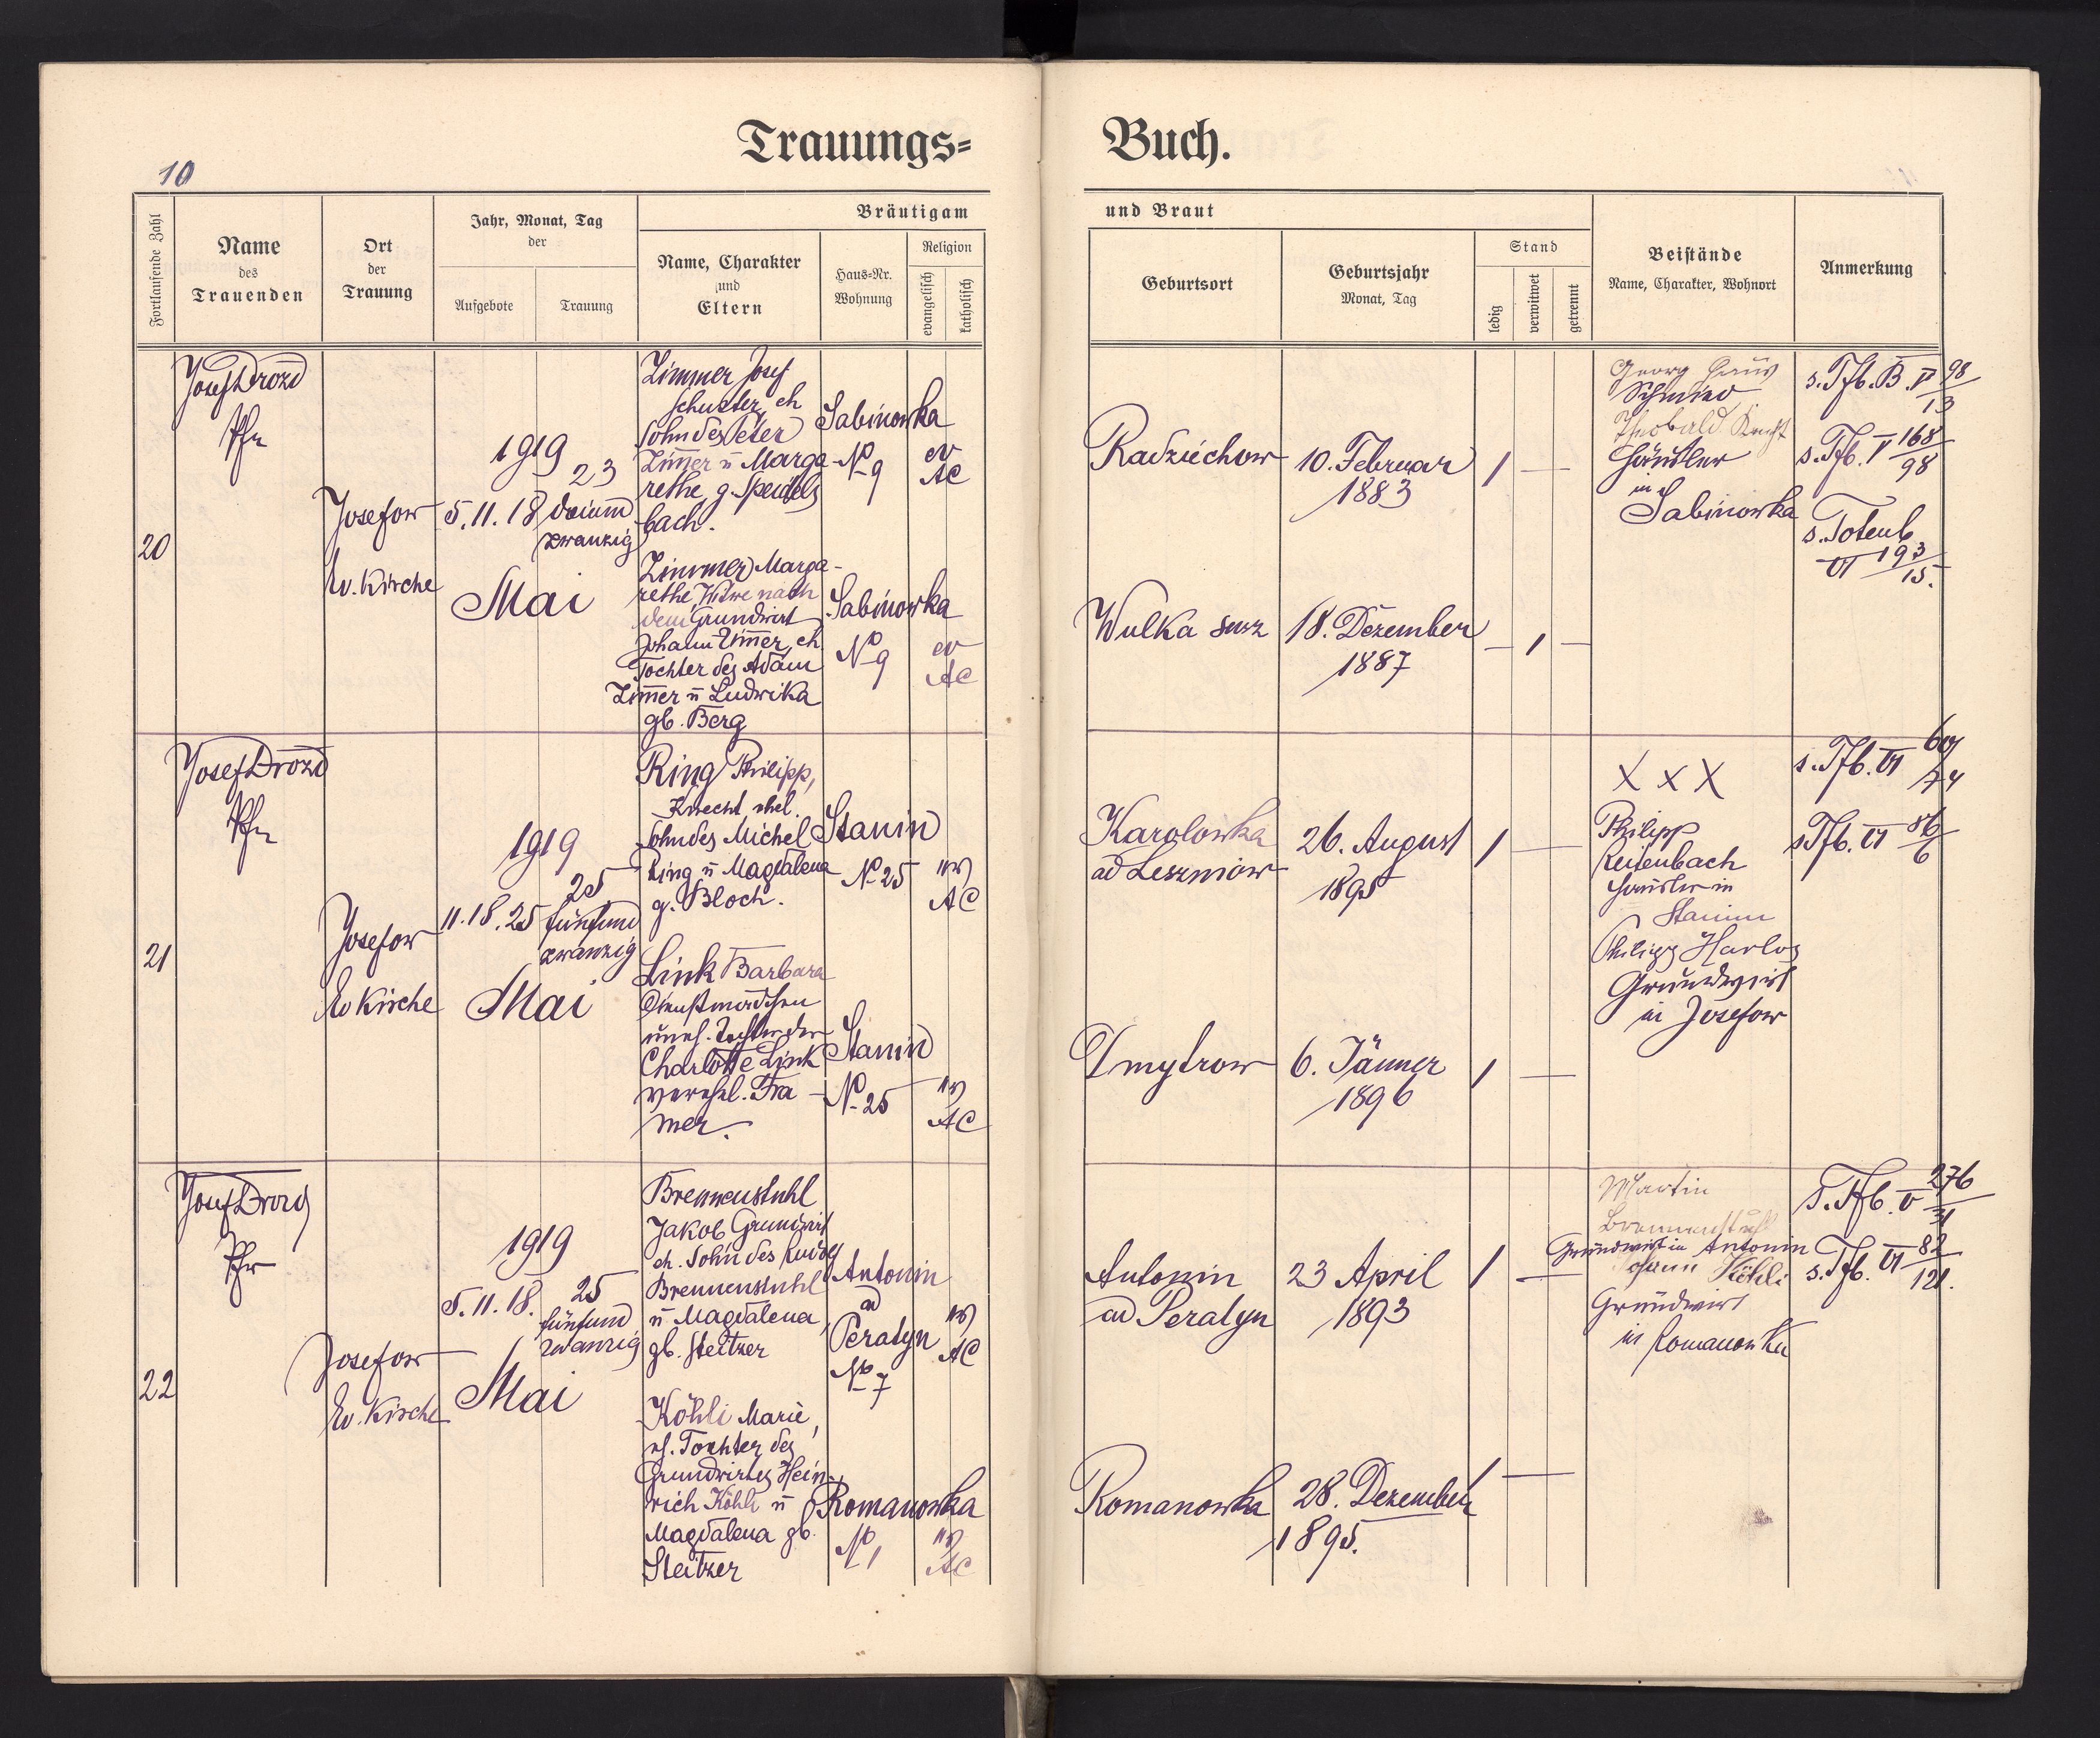 10
Trauungs=
Buch.
Fortlaufende Zahl
Name
des
Trauenden
Ort
der
Trauung
Jahr, Monat, Tag
der
Aufgebote
Trauung
Bräutigam
Name, Charakter
und
Eltern
Haus=Nr.
Wohnung
Religion
evangelisch
katholisch
und Braut
Geburtsort
Geburtsjahr
Monat, Tag
Stand
ledig
verwitwet
getrennt
Beistände
Name, Charakter, Wohnort
Anmerkung
20
Josef Drozd
Pfr
Josefow
Ev. Kirche
1919
5. 11. 18
23
dreiund
zwanzig
Mai
Zimmer Josef
Schuster, eh
Sohn des Peter
Zim̄er u Marga-
rethe, g. Speidels
bach.
Sabinowka
No 9
ev
AC
Radziechow
10. Februar
1883
1
Georg
Schmied
Theobald
Häusler
in
Sabinowka
s. Tfb. B. V 98/13
s. Tfb. V 168/98
s. Totenb
VI 193/15.
Zimmer Marga-
rethe, Witwe nach
dem Grundwirt
Johann Zim̄er, eh.
Tochter des Adam
Zim̄er u Ludwika
gb. Berg
Sabinowka
No 9
ev
AC
Wulka
18. Dezember
1887
1
21
Josef Drozd
Pfr
Josefow
Ev Kirche
1919
11. 18. 25
25
fünfund
zwanzig
Mai
Ring Philipp,
Knecht ehel.
Sohn des Michel
Ring u Magdalena
g. Bloch.
Stanin
No 25
ev
AC
Karolowka
ad Leszniow
26. August
1895
1
X X X
Philipp
Reitenbach
Häusler in
Stanin
Philipp Harlos
Grundwirt
in Josefow
s. Tfb. VI 60/74
s Tfb. VI 86/6
Link Barbara
Dienstmädchen
uneh. Tochter der
Charlotte Link
verehl. Tra-
mer.
Stanin
No 25
ev
AC
Dmytrow
6. Jänner
1896
1
22
Josef Drozd
Pfr
Josefow
Ev. Kirche
1919
5. 11. 18.
25
fünfund
zwanzig
Mai
Brennenstuhl
Jakob Grundwirt
eh. Sohn des Rudolf
Brennenstuhl
u Magdalena,
gb. Steitzer
Antonin
ad
Peratyn
No 7
ev
AC
Antonin
ad Peratyn
23 April
1893
1
Martin
Brennenstuhl
Grundwirt in Antonin
Johann Köhli
Grundwirt
in Romanowka
s. Tfb. V 276/31
s. Tfb. VI 82/121.
Köhli Marie,
eh. Tochter des
Grundwirtes Hein-
rich Köhli u
Magdalena gb.
Steitzer
Romanowka
No 1
ev
AC
Romanowka
28. Dezember
1895.
1